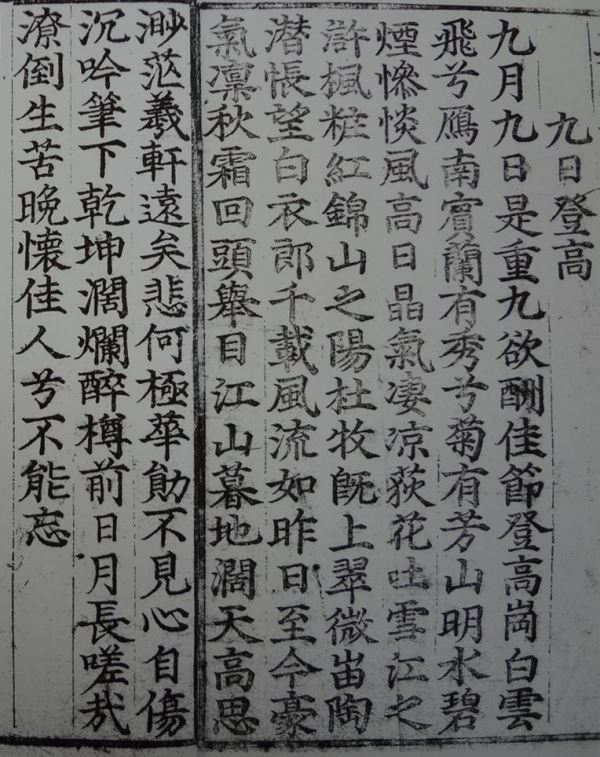 九日登高
九月九日是重九欲酬佳節登高崗白雲
飛兮鴈南賓蘭有秀兮菊有芳山明水碧
煙慘惔風高日晶氣凄凉荻花吐雪江之
滸楓粧紅錦山之陽杜牧旣上翠微峀陶
潜悵望白衣郎千載風流如昨日至今豪
氣凜秋霜回頭舉目江山暮地濶天高思
渺茫羲軒遠矣悲何極華勛不見心自傷
沉吟筆下乾坤濶爛醉樽前日月長嗟哉
潦倒生苦晩懷佳人兮不能忘